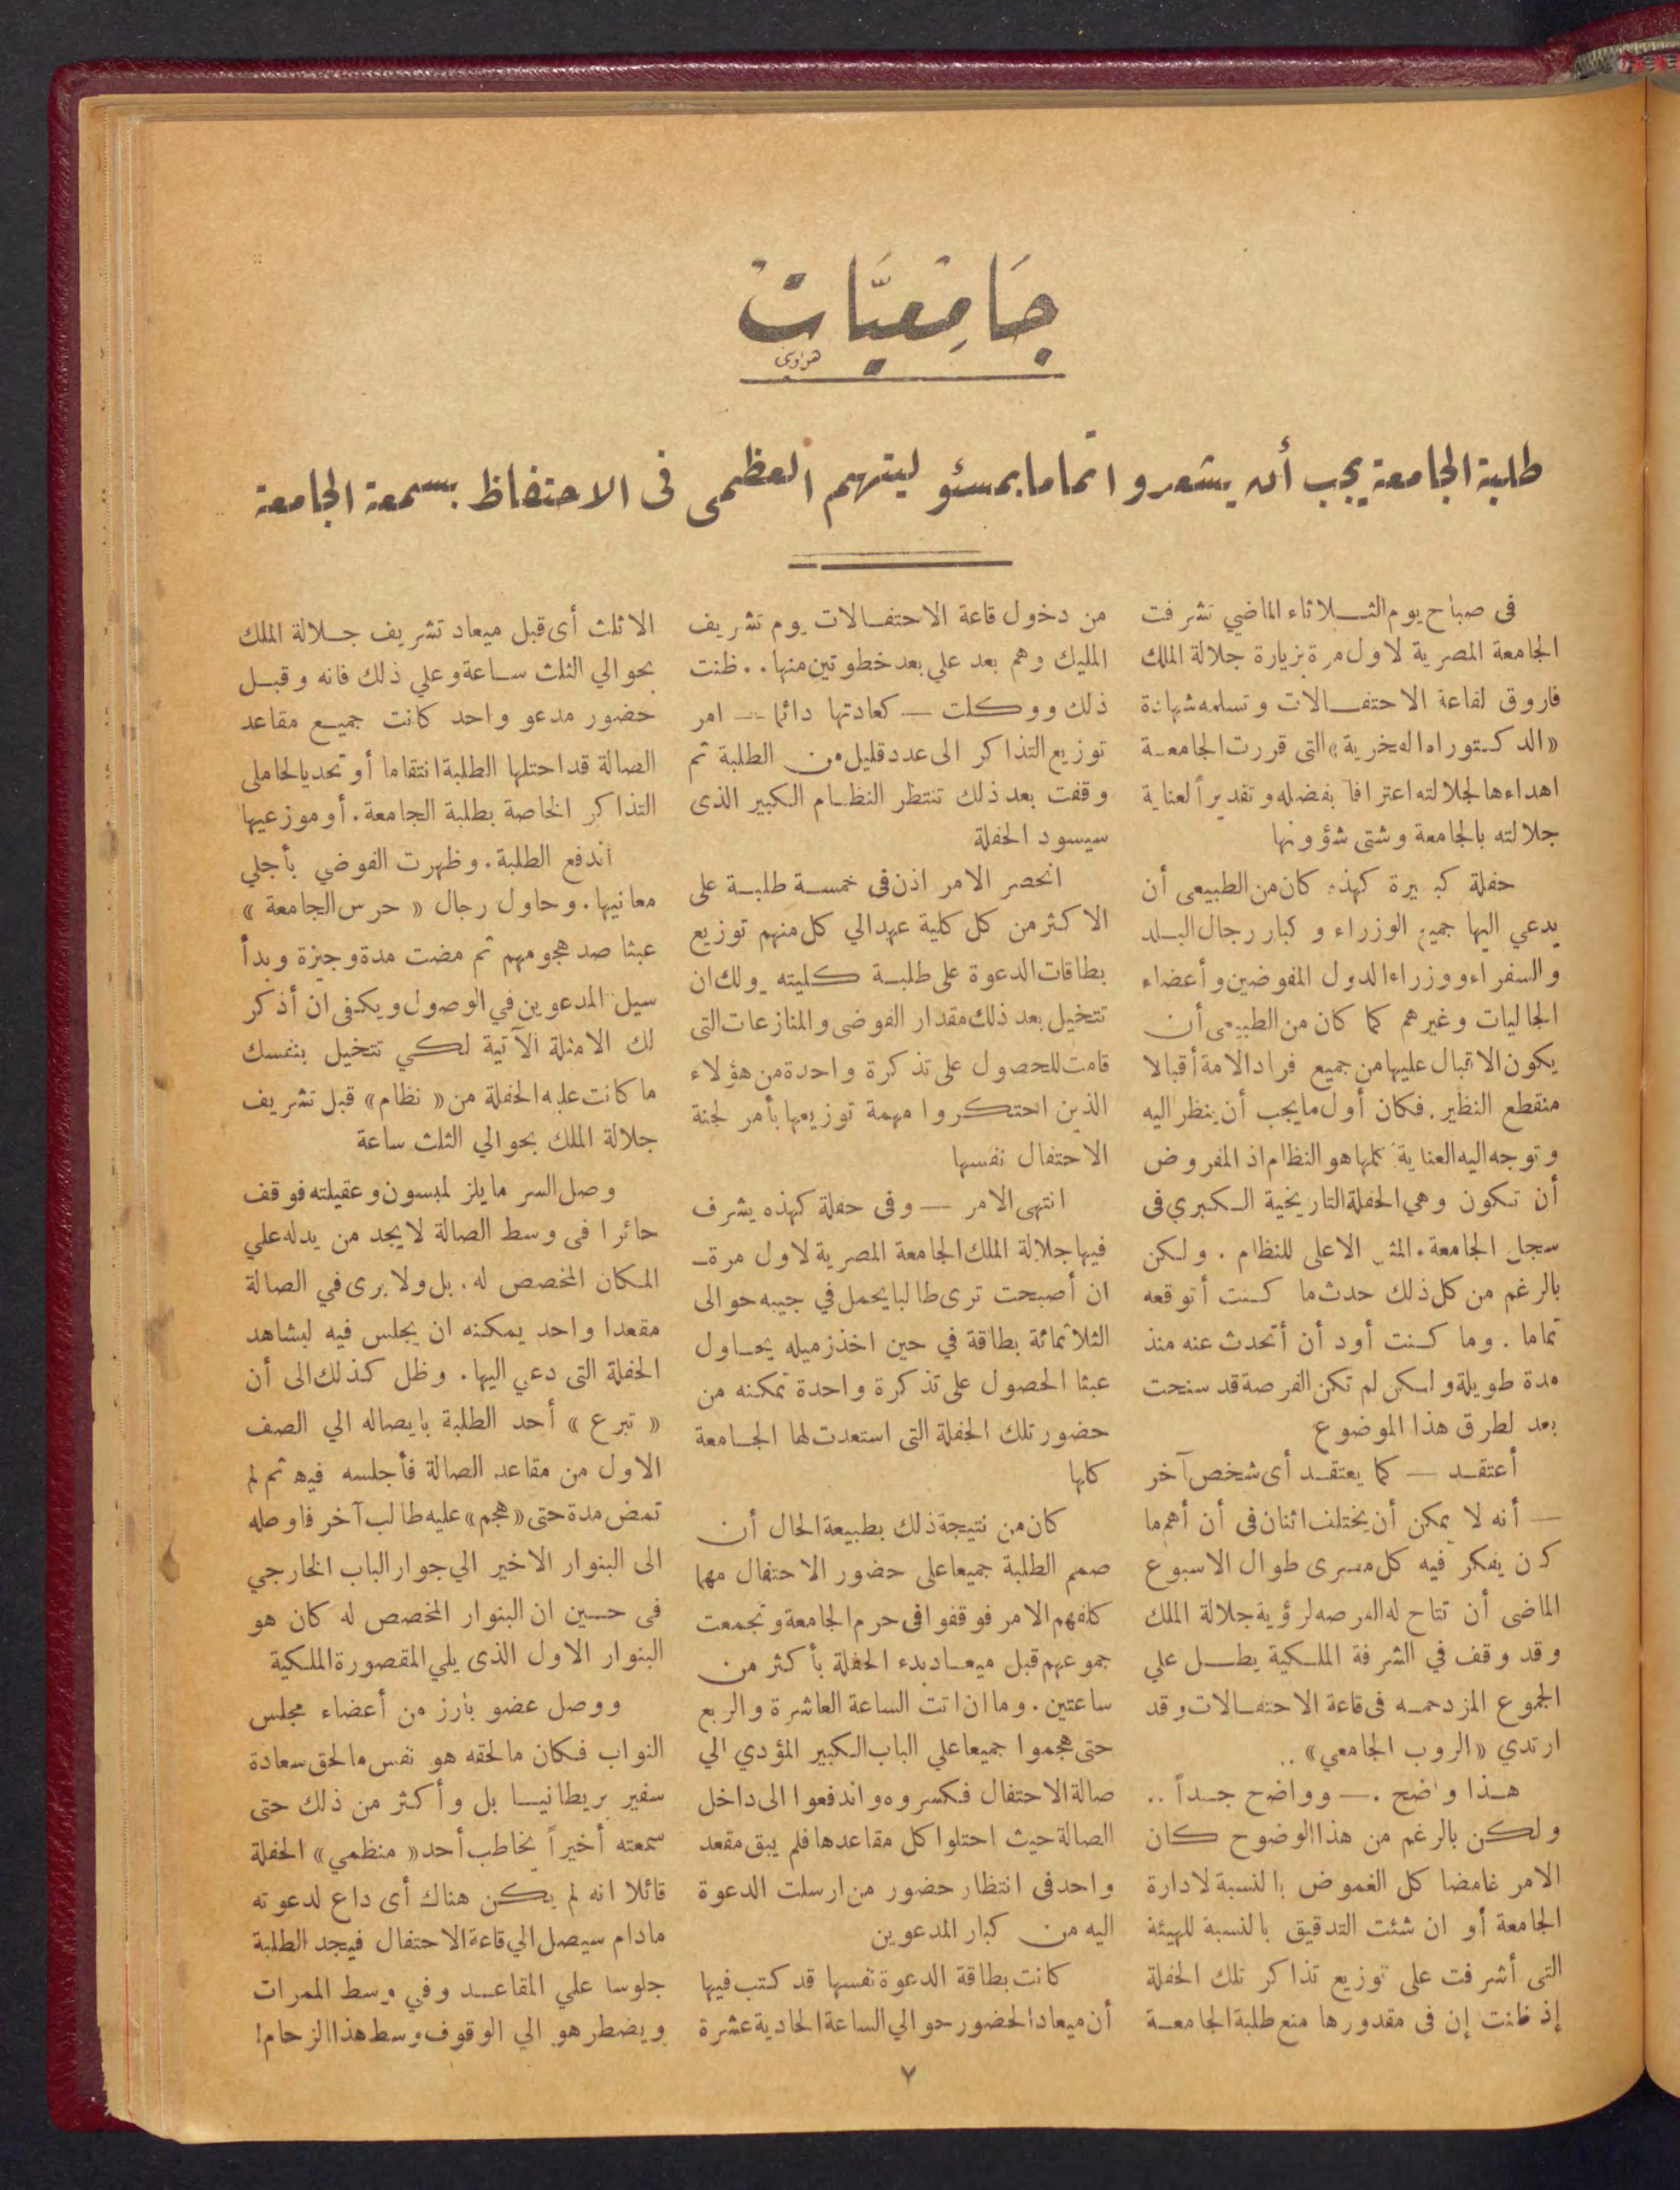 جَامِعيَّات
هواوى
طلبة الجامعة يجب أن يشعروا تماما بمسئوليتهم العظمى فى الاحتفاظ بسمعة الجامعة
فى صباح يوم الثلاثاء الماضي تشرفت
الجامعة المصرية لاول مرة بزيارة جلالة الملك
فاروق لقاعة الاحتفالات وتسلمه شهادة
«الدكتوراه الفخرية» التى قررت الجامعة
اهداءها لجلالته اعترافاً بفضله وتقديراً لعناية
جلالته بالجامعة وشتى شؤونها
حفلة كبيرة كهذه كان من الطبيعى أن
يدعي اليها جميع الوزراء وكبار رجال البلد
والسفراء ووزراء الدول المفوضين وأعضاء
الجاليات وغيرهم كما كان من الطبيعى أن
يكون الاقبال عليها من جميع فراد الامة أقبالا
منقطع النظير. فكان أول ما يجب أن ينظر اليه
وتوجه اليه العناية كلها هو النظام اذ المفروض
أن تكون وهي الحفلة التاريخية الكبري فى
سجل الجامعة. المثل الاعلى للنظام . ولكن
بالرغم من كل ذلك حدث ما كنت أتوقعه
تماما . وما كنت أود أن أتحدث عنه منذ
مدة طويلة ولكن لم تكن الفرصة قد سنحت
بعد لطرق هذا الموضوع
أعتقد — كما يعتقد أى شخص آخر
— أنه لا يمكن أن يختلف اثنان فى أن أهم ما
كان يفكر فيه كل مصرى طوال الاسبوع
الماضى أن تتاح له الفرصه لرؤية جلالة الملك
وقد وقف في الشرفة الملكية يطل علي
الجموع المزدحمه فى قاعة الاحتفالات وقد
ارتدي «الروب الجامعي» ..
هذا واضح .— وواضح جداً ..
ولكن بالرغم من هذا الوضوح كان
الامر غامضا كل الغموض بالنسبة لادارة
الجامعة أو ان شئت التدقيق بالنسبة للهيئة
التى أشرفت على توزيع تذاكر تلك الحفلة
إذ ظنت إن فى مقدورها منع طلبة الجامعة
من دخول قاعة الاحتفالات يوم تشريف
المليك وهم بعد علي بعد خطوتين منها.. ظنت
ذلك ووكلت — كعادتها دائما — امر
توزيع التذاكر الى عدد قليل من الطلبة ثم
وقفت بعد ذلك تنتظر النظام الكبير الذى
سيسود الحفلة
انحصر الامر اذن فى خمسة طلبة على
الاكثر من كل كلية عهد الي كل منهم توزيع
بطاقات الدعوة على طلبة كليته ولك ان
تتخيل بعد ذلك مقدار الفوضى والمنازعات التى
قامت للحصول على تذكرة واحدة من هؤلاء
الذين احتكروا مهمة توزيعها بأمر لجنة
الاحتفال نفسها
انتهى الامر — وفى حفلة كهذه يشرف
فيها جلالة الملك الجامعة المصرية لاول مرة—
ان أصبحت ترى طالبا يحمل في جيبه حوالى
الثلاثمائة بطاقة في حين اخذ زميله يحاول
عبثا الحصول على تذكرة واحدة تمكنه من
حضور تلك الحفلة التى استعدت لها الجامعة
كلها
كان من نتيجة ذلك بطبيعة الحال أن
صمم الطلبة جميعا على حضور الاحتفال مهما
كلفهم الامر فوقفوا فى حرم الجامعة وتجمعت
جموعهم قبل ميعاد بدء الحفلة بأكثر من
ساعتين. وما ان اتت الساعة العاشرة والربع
حتى هجموا جميعا علي الباب الكبير المؤدي الي
صالة الاحتفال فكسروه واندفعوا الى داخل
الصالة حيث احتلوا كل مقاعدها فلم يبق مقعد
واحد فى انتظار حضور من ارسلت الدعوة
اليه من كبار المدعوين
كانت بطاقة الدعوة نفسها قد كتب فيها
أن ميعاد الحضور حوالي الساعة الحادية عشرة
الا ثلث أى قبل ميعاد تشريف جلالة الملك
بحوالي الثلث ساعة وعلي ذلك فانه وقبل
حضور مدعو واحد كانت جميع مقاعد
الصالة قد احتلها الطلبة انتقاما أو تحديا لحاملى
التذاكر الخاصة بطلبة الجامعة. أو موزعيها
أندفع الطلبة. وظهرت الفوضي بأجلي
معانيها. وحاول رجال « حرس الجامعة »
عبثا صد هجومهم ثم مضت مدة وجيزة وبدأ
سيل المدعوين في الوصول ويكفى ان أذكر
لك الامثلة الآتية لكي تتخيل بنفسك
ما كانت عليه الحفلة من « نظام» قبل تشريف
جلالة الملك بحوالي الثلث ساعة
وصل السر مايلز لمبسون وعقيلته فوقف
حائرا فى وسط الصالة لا يجد من يدله علي
المكان المخصص له. بل ولا يرى في الصالة
مقعدا واحد يمكنه ان يجلس فيه ليشاهد
الحفلة التى دعي اليها. وظل كذلك الى أن
« تبرع » أحد الطلبة بايصاله الي الصف
الاول من مقاعد الصالة فأجلسه فيه ثم لم
تمض مدة حتى «هجم» عليه طالب آخر فاوصله
الى البنوار الاخير الي جوار الباب الخارجي
فى حين ان البنوار المخصص له كان هو
البنوار الاول الذى يلي المقصورة الملكية
ووصل عضو بارز من أعضاء مجلس
النواب فكان ما لحقه هو نفس ما لحق سعادة
سفير بريطانيا بل وأكثر من ذلك حتى
سمعته أخيراً يخاطب أحد « منظمي» الحفلة
قائلا انه لم يكن هناك أى داع لدعوته
مادام سيصل الي قاعة الاحتفال فيجد الطلبة
جلوسا علي المقاعد وفي وسط الممرات
ويضطر هو الي الوقوف وسط هذا الزحام!
٧